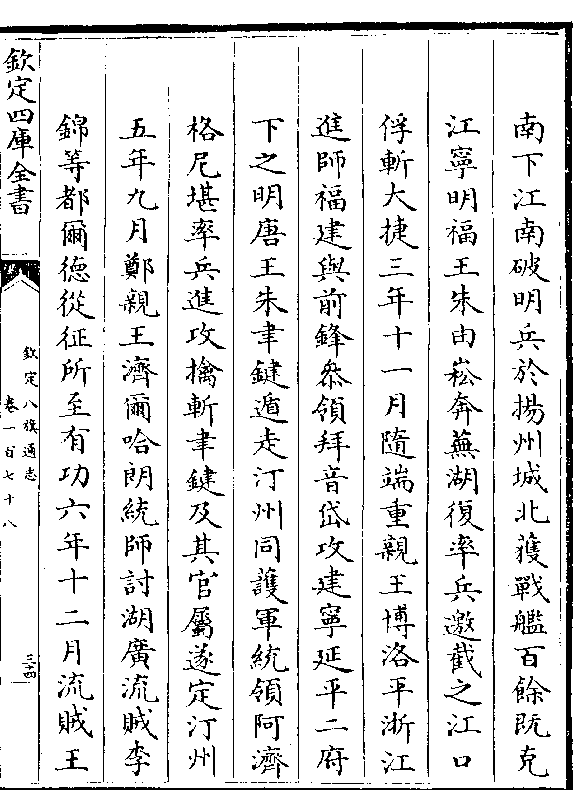 南下江南破明兵於揚州城北獲戰艦百餘既克
江寧明福王朱由崧奔蕪湖復率兵邀截之江口
俘斬大捷三年十一月隨端重親王博洛平浙江
進師福建與前鋒叅領拜音岱攻建寧延平二府
下之明唐王朱聿鍵遁走汀州同護軍統領阿濟
格尼堪率兵進攻擒斬聿鍵及其官屬遂定汀州
五年九月鄭親王濟爾哈朗統師討湖廣流賊李
錦等都爾德從征所至有功六年十二月流賊王
欽定四庫全書
欽定八旗通志
卷一百七十八
三十四